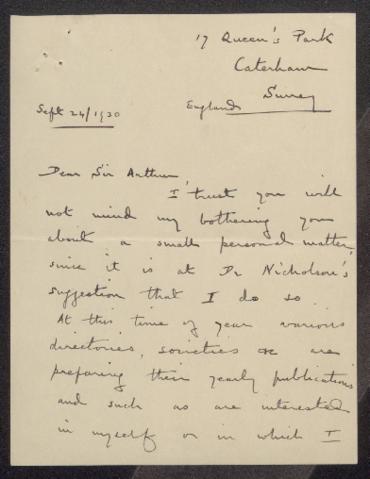 17 Queen's Park
Caterham
Surrey
England
Sept 24/1920
Dear Sir Arthur,
I trust you will
not mind my bothering you
about a small personal matter,
since it is at Dr Nicholson's
suggestion that I do so.
At this time of year various
directories, societies &c are
preparing their yearly publications
and such as are interested
in myself or in which I